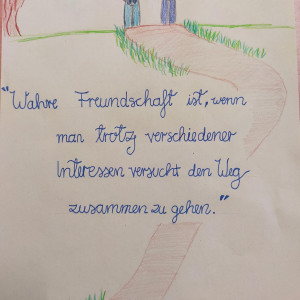 "Wahre Freundschaft ist, wenn
man trotz verschiedener
Interessen versucht den Weg
zusammen zu gehen."